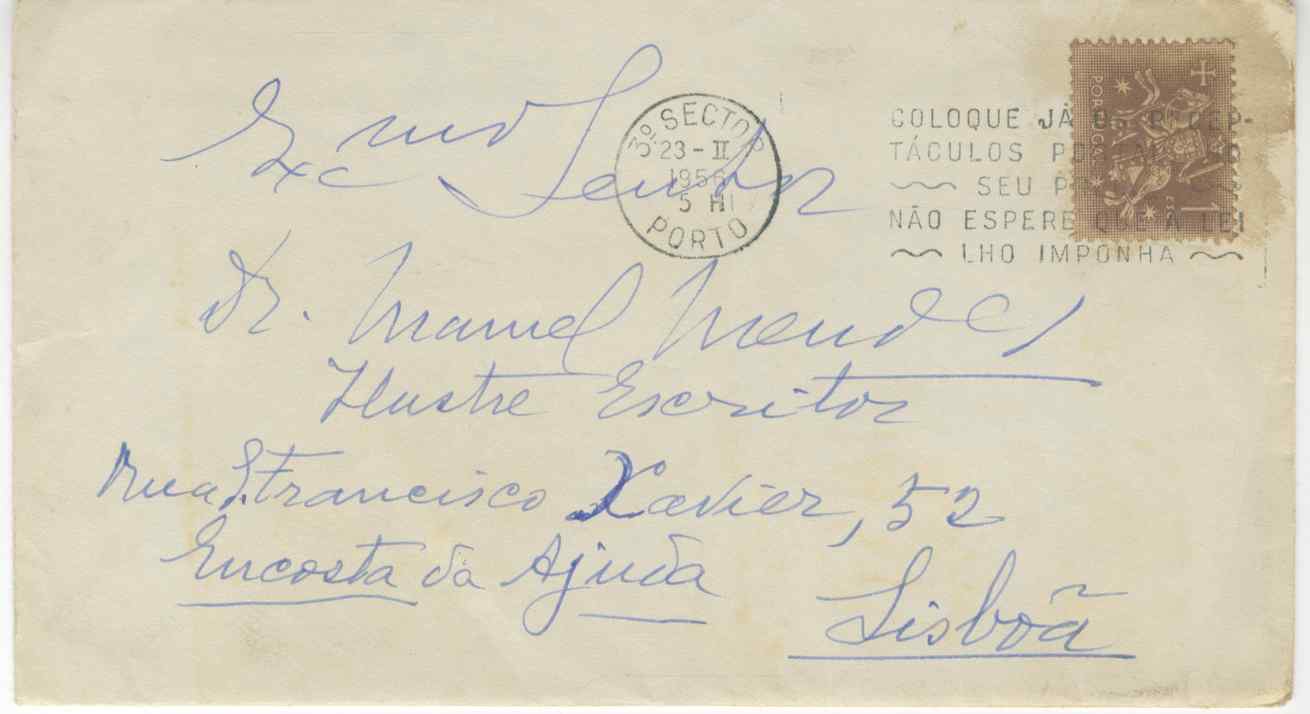 Excmo Senhor
3º SECTOR
23-II
1956
5 H
PORTO
COLOQUE JÁ OS RECEP-
TÁCULOS
SEU
NÃO ESPERE QUE A LEI
LHO IMPONHA
PORTUGAL
1
Dr. Manuel Mendes
Ilustre Escritor
Rua S. Francisco Xavier, 52
Encosta da Ajuda
Lisboa